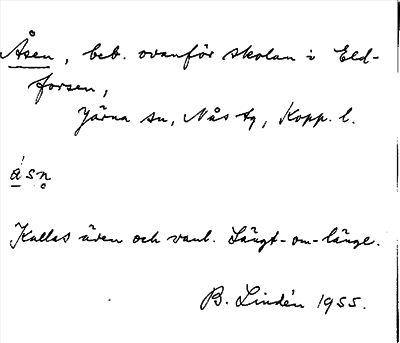 Åsen, beb. ovanför skolan i Eld-
forsen,
Järna sn, Nås tg, Kopp. l.
ásn̥
Kallas även och vanl. Långt-om-länge.
B. Lindén 1955.